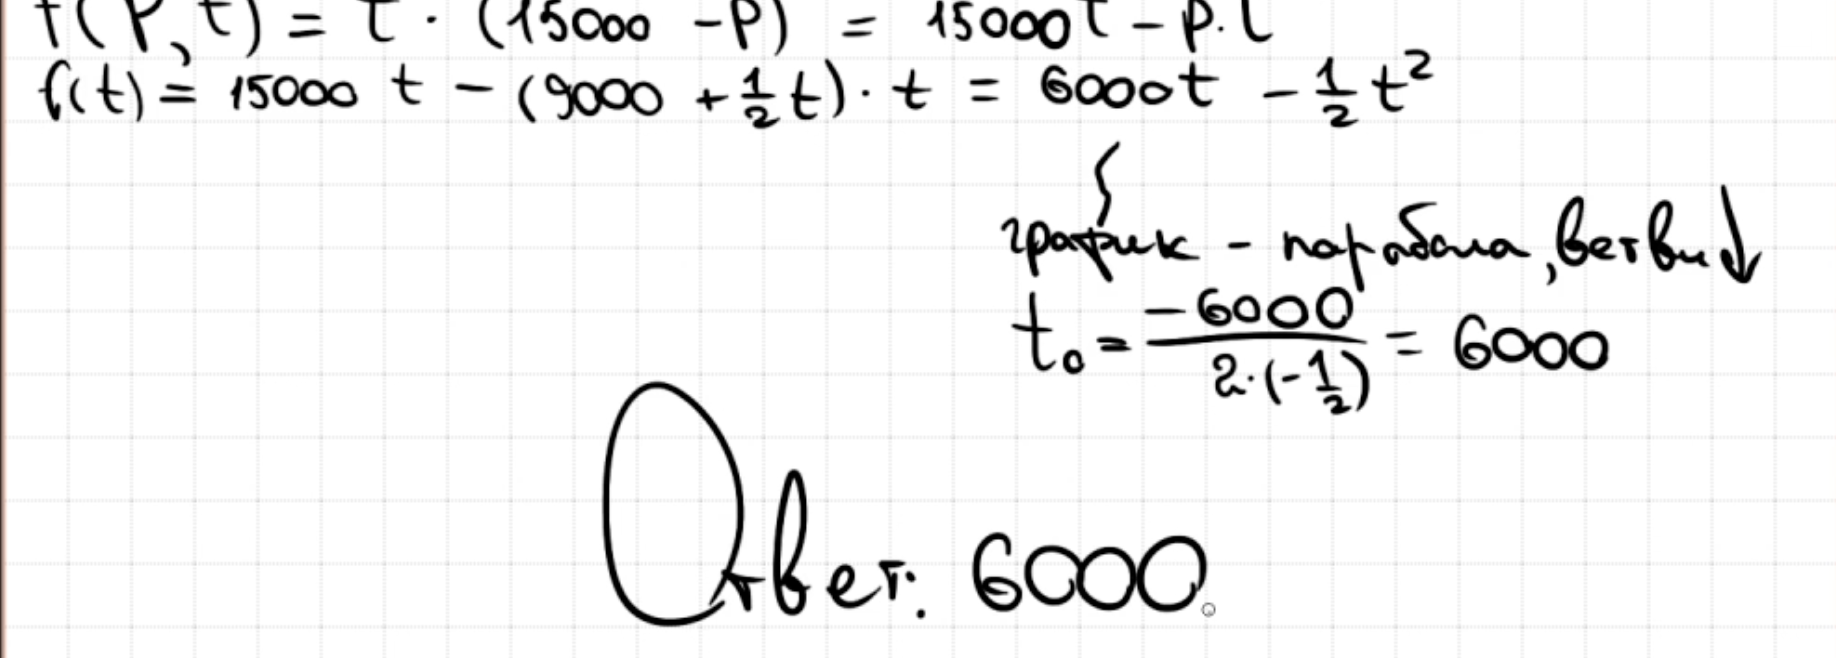 f(P,t) = t · (15000 - P) = 15000t - P·t
f(t) = 15000 t - (9000 + 1/2 t) · t = 6000t - 1/2 t²
график - парабола, ветви ↓
t₀ = -6000 / 2·(-1/2) = 6000
Ответ: 6000.